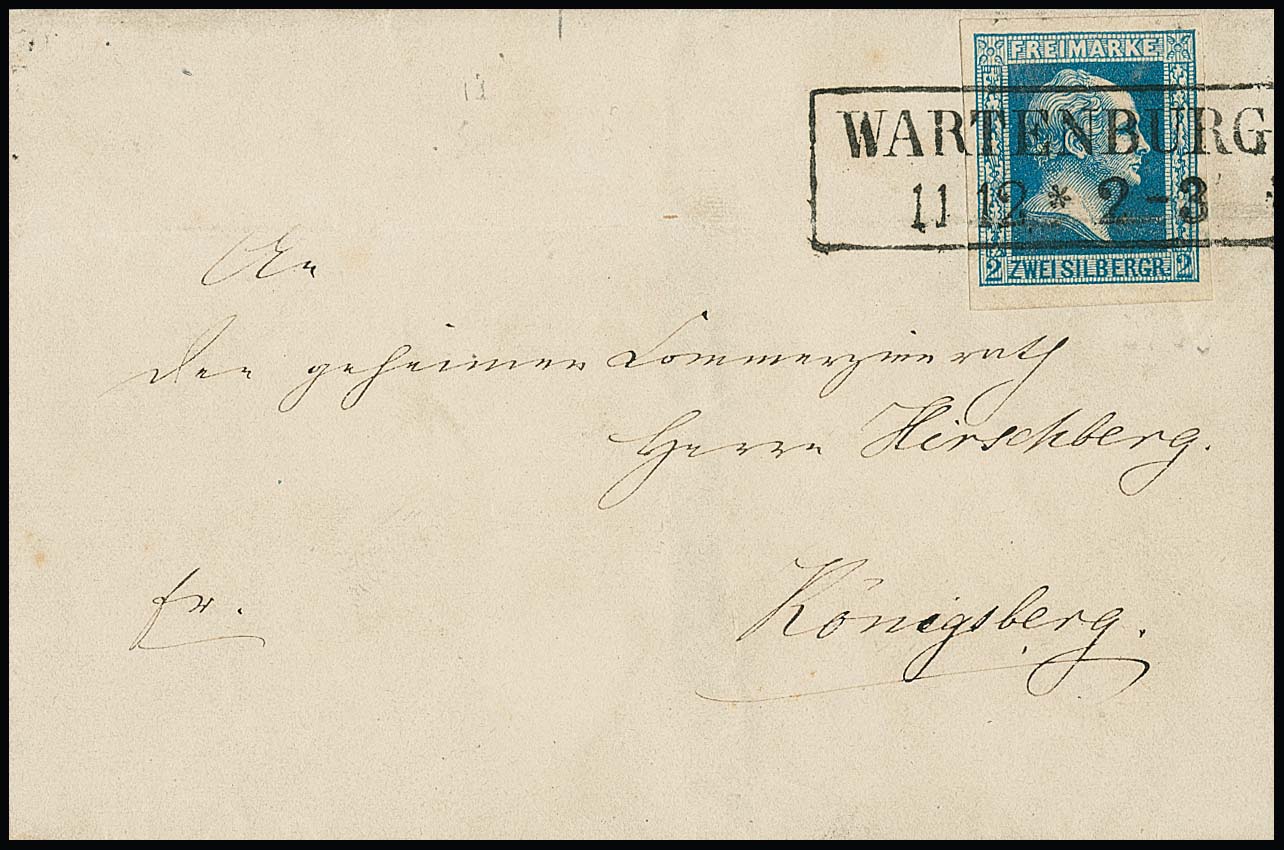 FREIMARKE
WARTENBURG
11 12 * 2-3 *
2 ZWEI SILBERGR. 2
An
den geheimen Commerzienrath
Herrn Hirschberg.
fr.
Königsberg.